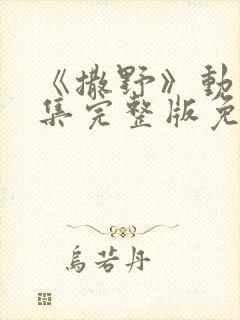 《撒野》動
集完整版免
烏若丹